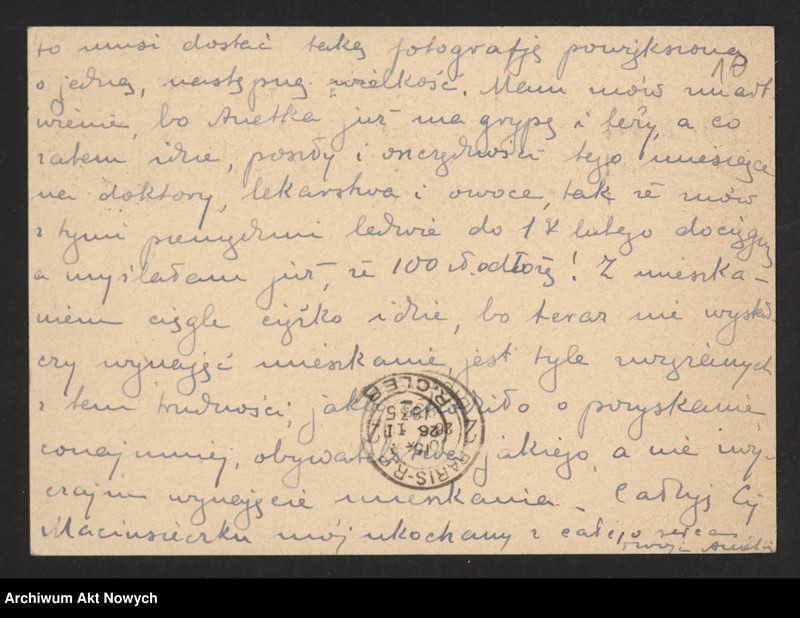 to musi dostać taką fotografję powiększoną
10
o jedną, następną wielkość. Mam znów zmart
wienie, bo Anetka już ma grypę i leży, a co
zatem idzie, poszły i oszczędności tego miesiąca
na doktory, lekarstwa i owoce, tak że znów
z tymi pieniędzmi ledwie do 1 lutego dociągnę
a myślałam już, że 100 zł. odłożę! Z mieszka-
niem ciągle ciężko idzie, bo teraz nie wystar
czy wynająć mieszkanie, jest tyle związanych
z tem trudności, jakby chodziło o pozyskanie
conajmniej, obywatelstwa jakiego, a nie zwy-
czajne wynajęcie mieszkania. Całuję Cię
Maciusieczku mój ukochany z całego serca
Twoja Anielka
PARIS-R.P.
R. CLER
15
26 II
1935
Archiwum Akt Nowych